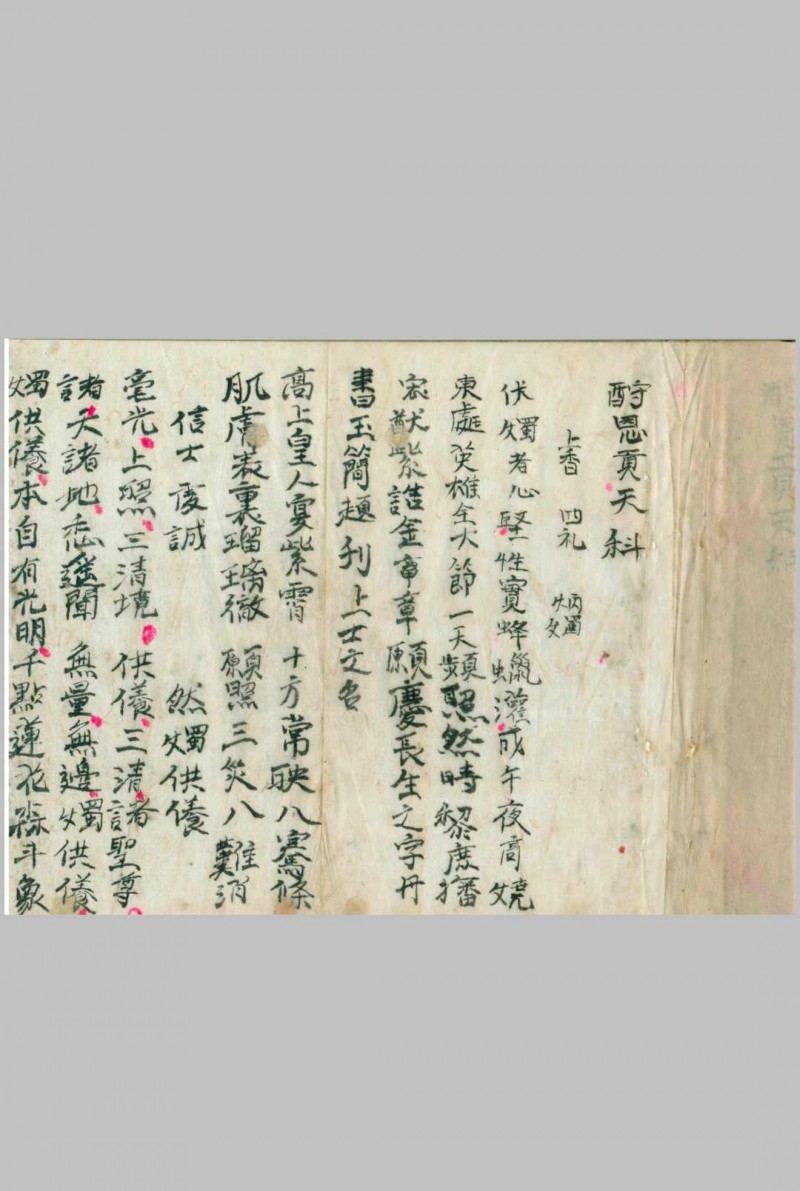 酧恩貢天科
上香　四礼　炳燭
伏燭者心堅性實蜂蠟灌成午夜高燒
東處英雄全大節一天頻照然時黎庶播
家猷紫誥金章章願慶長生之字丹
書玉簡題刊上士之名
高上皇人宴紫霄　十方常映八騫條
肌膚表裏瑠璃徹　願照三災八難消
信士虔誠　然燭供養
毫光上照三清境供養三清諸聖尊
諸天諸地悉遥聞　無量無邊燭供養
燭供養本自有光明千點蓮花森斗象